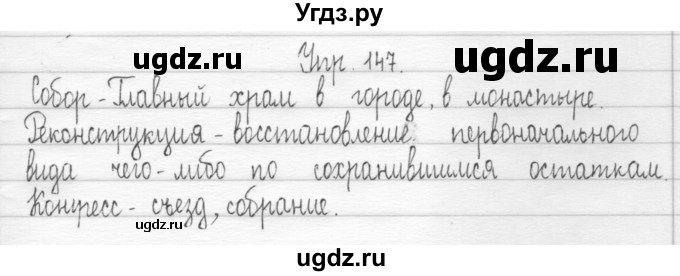 Угдз.ру
ugdz.ru ugdz.ru
Упр. 147.
ugdz.ru
Собор - Главный храм в городе, в монастыре.
Реконструкция - восстановление первоначального
вида чего-либо по сохранившимся остаткам.
Конгресс - съезд, собрание.
ugdz.ru
ugdz.ru